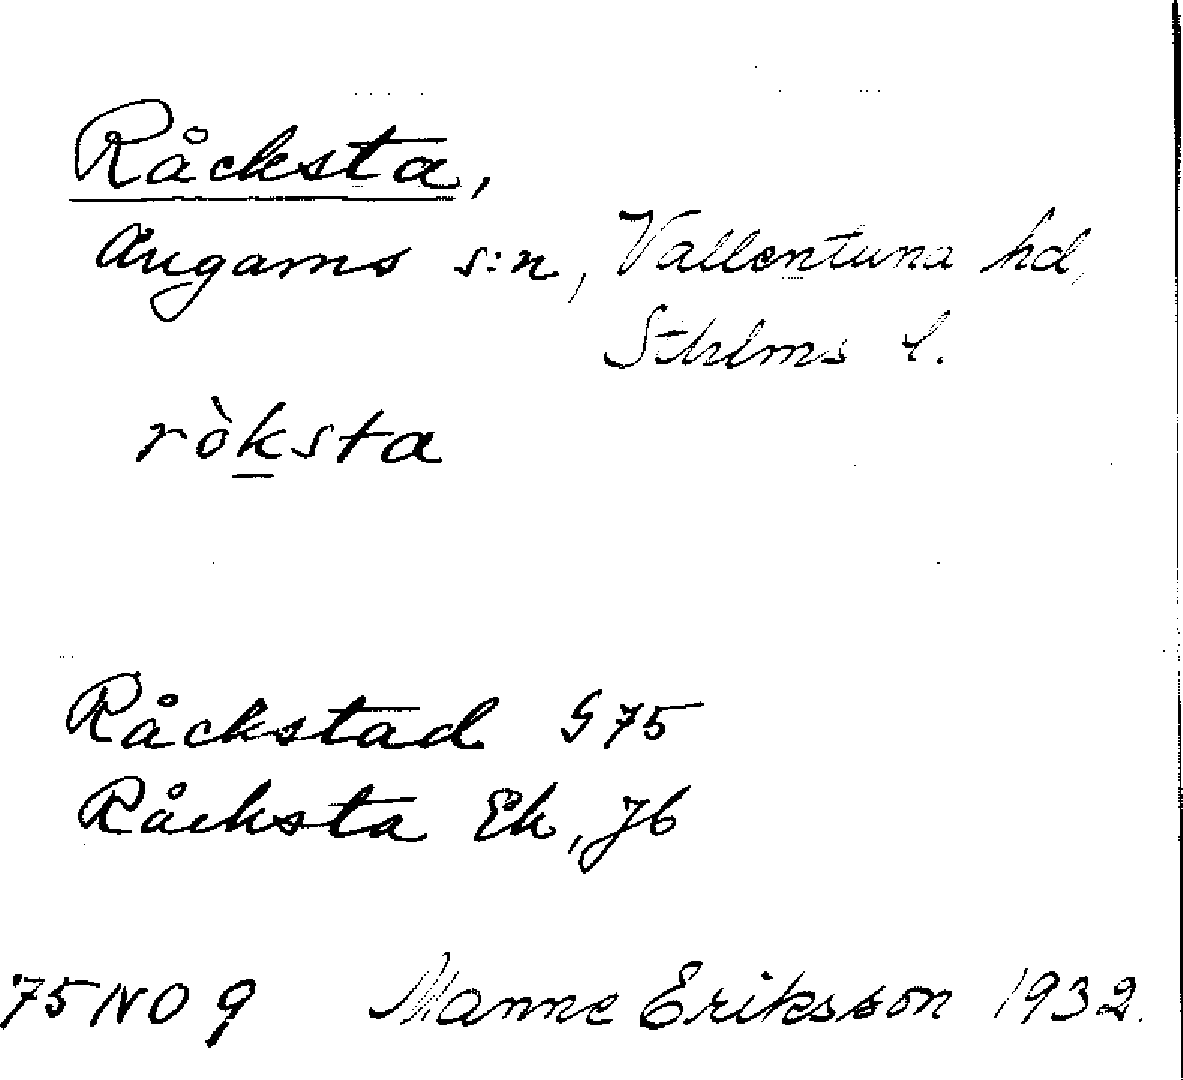 Råcksta,
Angarns s:n, Vallentuna hd,
Sthlms l.
ròksta
Råckstad G75
Råcksta Ek, Jb
75 NO 9 Manne Eriksson 1932.